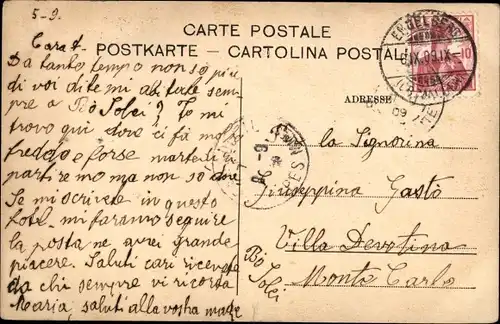 5-9.
CARTE POSTALE
POSTKARTE - CARTOLINA POSTALE
ADRESSE
Cara
Da tanto tempo non so più
di voi ditemi abitate sem
pre a Bò Solei? Io mi
trovo qui dove ci fà mo
freddo e forse martedì
partiremo ma non so
Se mi scrivete in questo
mi faranno seguire
la posta ne avrei grande
piacere. Saluti cari ricevete
da chi sempre vi ricorda
Maria, saluti alla vostra madre
la Signorina
Giuseppina Gastò
Villa Devotina
Bò Solei
Monte Carlo
ENGELBERG
6.IX.09.IX
10